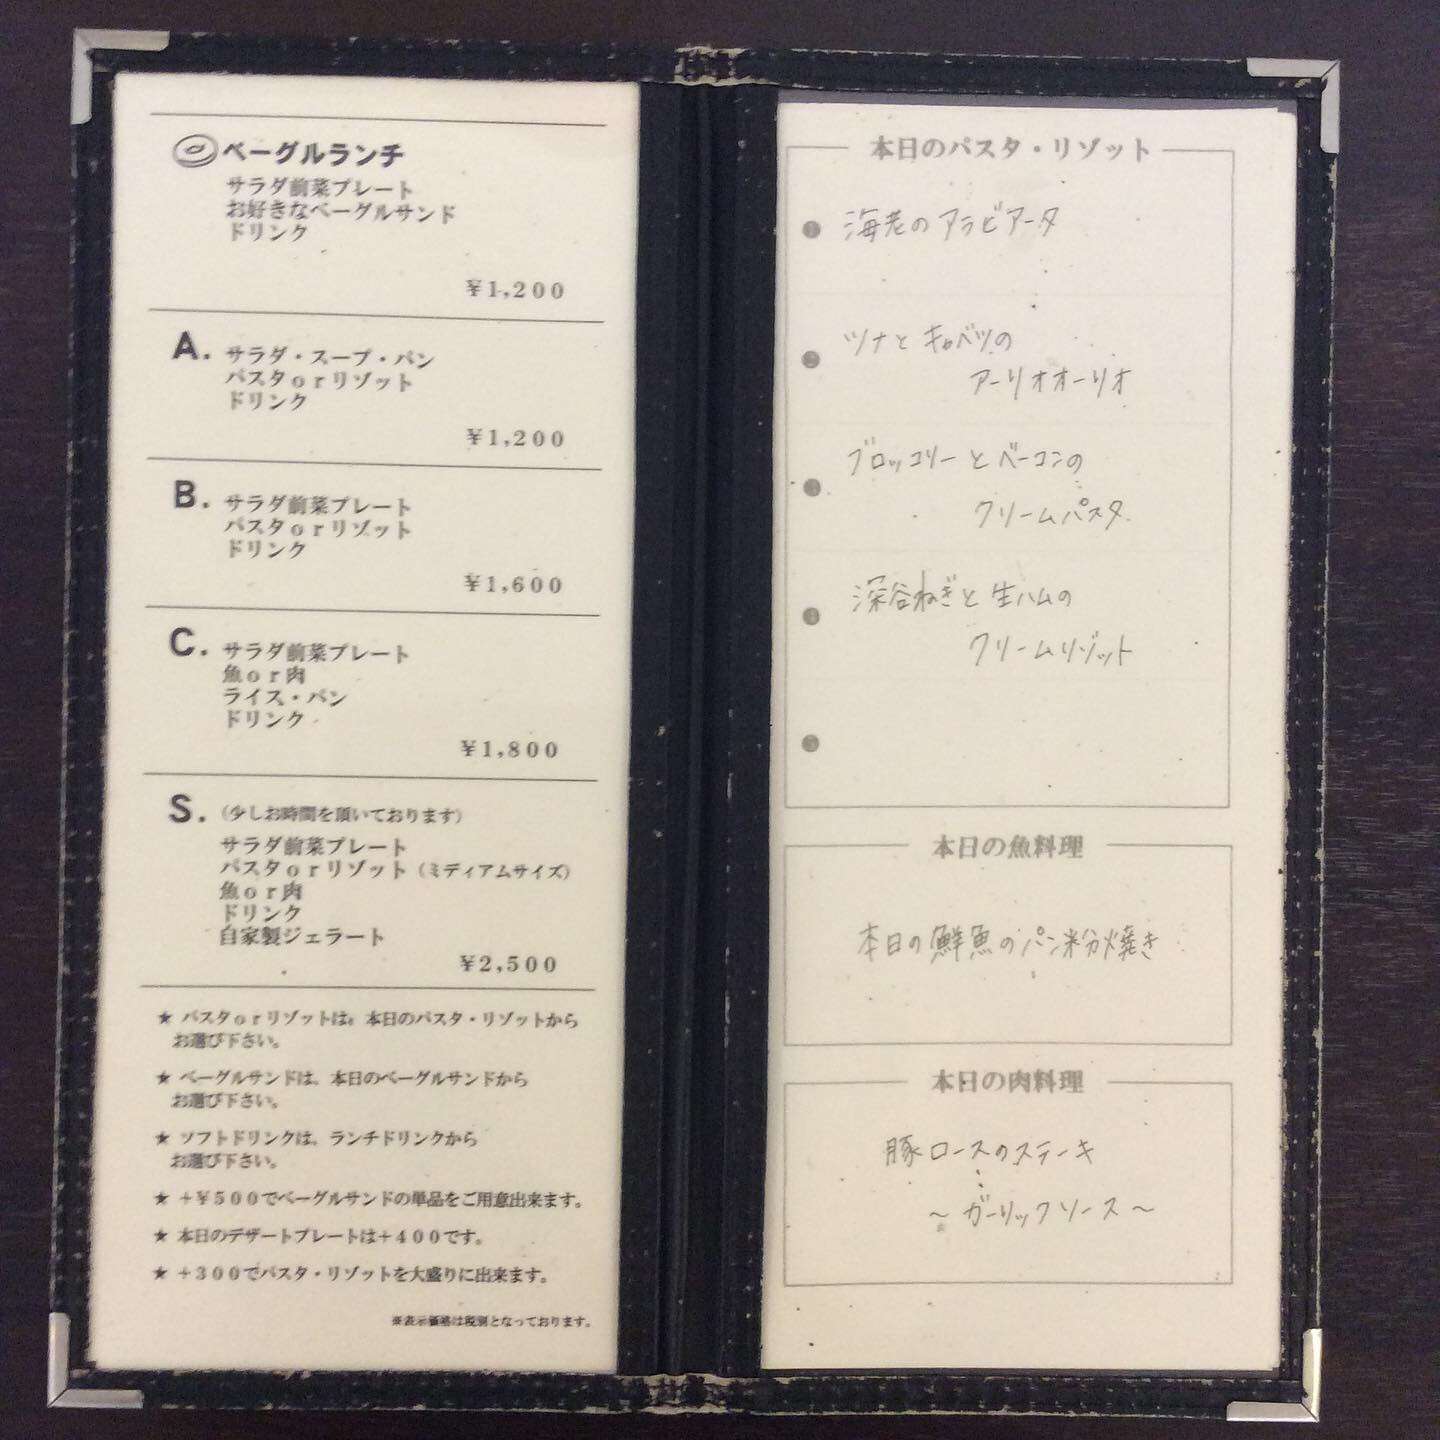 ベーグルランチ
サラダ前菜プレート
お好きなベーグルサンド
ドリンク
¥1,200
A. サラダ・スープ・パン
パスタorリゾット
ドリンク
¥1,200
B. サラダ前菜プレート
パスタorリゾット
ドリンク
¥1,600
C. サラダ前菜プレート
魚or肉
ライス・パン
ドリンク
¥1,800
S. (少しお時間を頂いております)
サラダ前菜プレート
パスタorリゾット(ミディアムサイズ)
魚or肉
ドリンク
自家製ジェラート
¥2,500
★ パスタorリゾットは、本日のパスタ・リゾットから
お選び下さい。
★ ベーグルサンドは、本日のベーグルサンドから
お選び下さい。
★ ソフトドリンクは、ランチドリンクから
お選び下さい。
★ +¥500でベーグルサンドの単品をご用意出来ます。
★ 本日のデザートプレートは+400です。
★ +300でパスタ・リゾットを大盛りに出来ます。
※表示価格は税別となっております。
本日のパスタ・リゾット
1 海老のアラビアータ
2 ツナとキャベツの
アーリオオーリオ
3 ブロッコリーとベーコンの
クリームパスタ
4 深谷ねぎと生ハムの
クリームリゾット
5
本日の魚料理
本日の鮮魚のパン粉焼き
本日の肉料理
豚ロースのステーキ
～ガーリックソース～